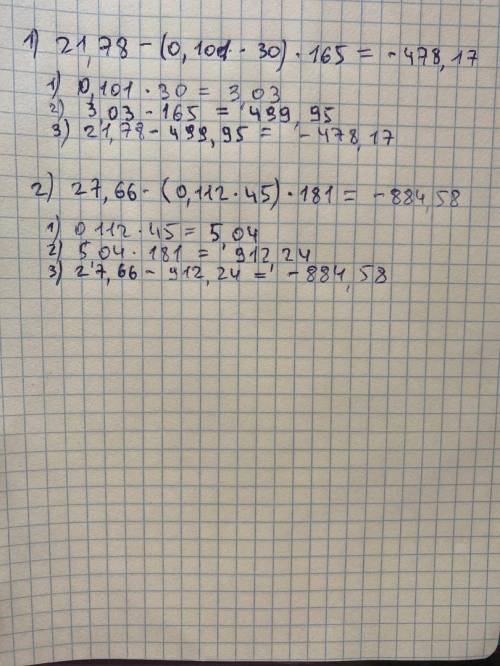 1) 21,78 - (0,101 · 30) · 165 = -478,17
1) 0,101 · 30 = 3,03
2) 3,03 · 165 = 499,95
3) 21,78 - 499,95 = -478,17
2) 27,66 - (0,112 · 45) · 181 = -884,58
1) 0,112 · 45 = 5,04
2) 5,04 · 181 = 912,24
3) 27,66 - 912,24 = -884,58